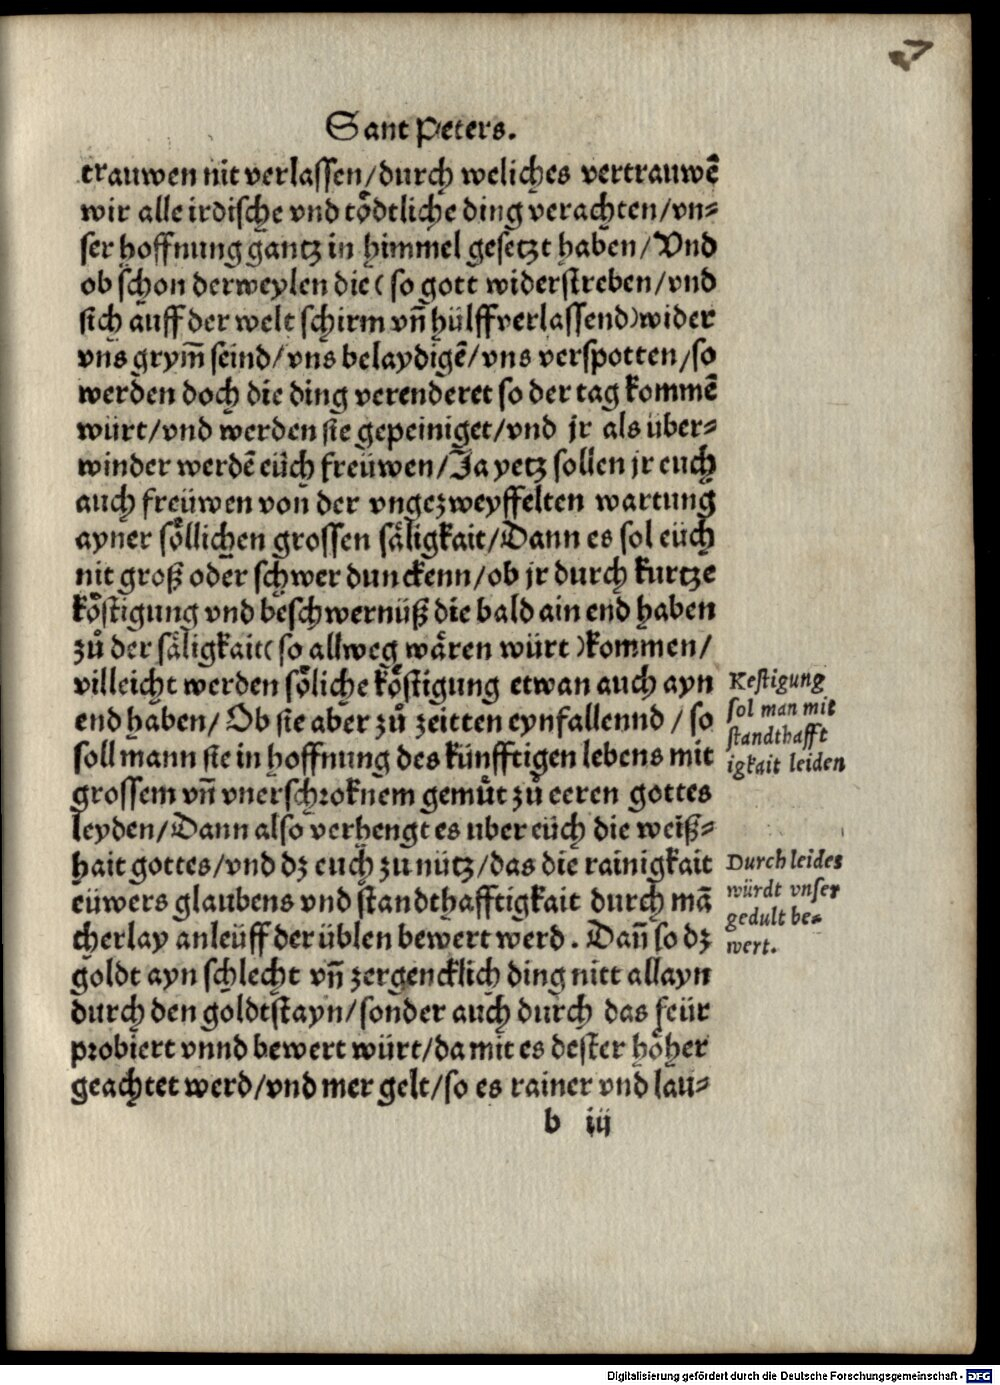 Sant Peters.
trauwen nit verlassen/durch weliches vertrauwē
wir alle irdische vnd toͤdtliche ding verachten/vn⸗
ser hoffnung gantz in himmel gesetzt haben/Vnd
ob schon derweylen die( so gott widerstreben/vnd
sich auff der welt schirm vn̄ hülff verlassend)wider
vns grym̄ seind/vns belaydigē/vns verspotten/so
werden doch die ding verenderet so der tag kommē
würt/vnd werden sie gepeiniget/vnd jr als über⸗
winder werdē eüch freüwen/Ja yetz sollen jr euch
auch freüwen von der vngezweyffelten wartung
ayner soͤllichen grossen saͤligkait/Dann es sol eüch
nit groß oder schwer dunckenn/ob jr durch kurtze
koͤstigung vnd beschwernüß die bald ain end haben
zuͦ der saͤligkait( so allweg waͤren würt )kommen/
villeicht werden soͤliche koͤstigung etwan auch ayn
end haben/ Ob sie aber zuͦ zeitten eynfallennd / so
soll mann sie in hoffnung des künfftigen lebens mit
grossem vn̄ vnerschroknem gemuͤt zuͦ eeren gottes
leyden/Dann also verhengt es uber eüch die weiß⸗
hait gottes/vnd dz euch zu nütz/das die rainigkait
eüwers glaubens vnd standthafftigkait durch mā
cherlay anleüff der üblen bewert werd. Dan̄ so dz
goldt ayn schlecht vn̄ zergencklich ding nitt allayn
durch den goldtstayn/sonder auch durch das feür
probiert vnnd bewert würt/da mit es dester hoͤher
geachtet werd/vnd mer gelt/so es rainer vnd lau⸗
b iij
Kestigung
sol man mit
standthafft
igkait leiden
Durch leides
würdt vnser
gedult be⸗
wert.
Digitalisierung gefördert durch die Deutsche Forschungsgemeinschaft - DFG